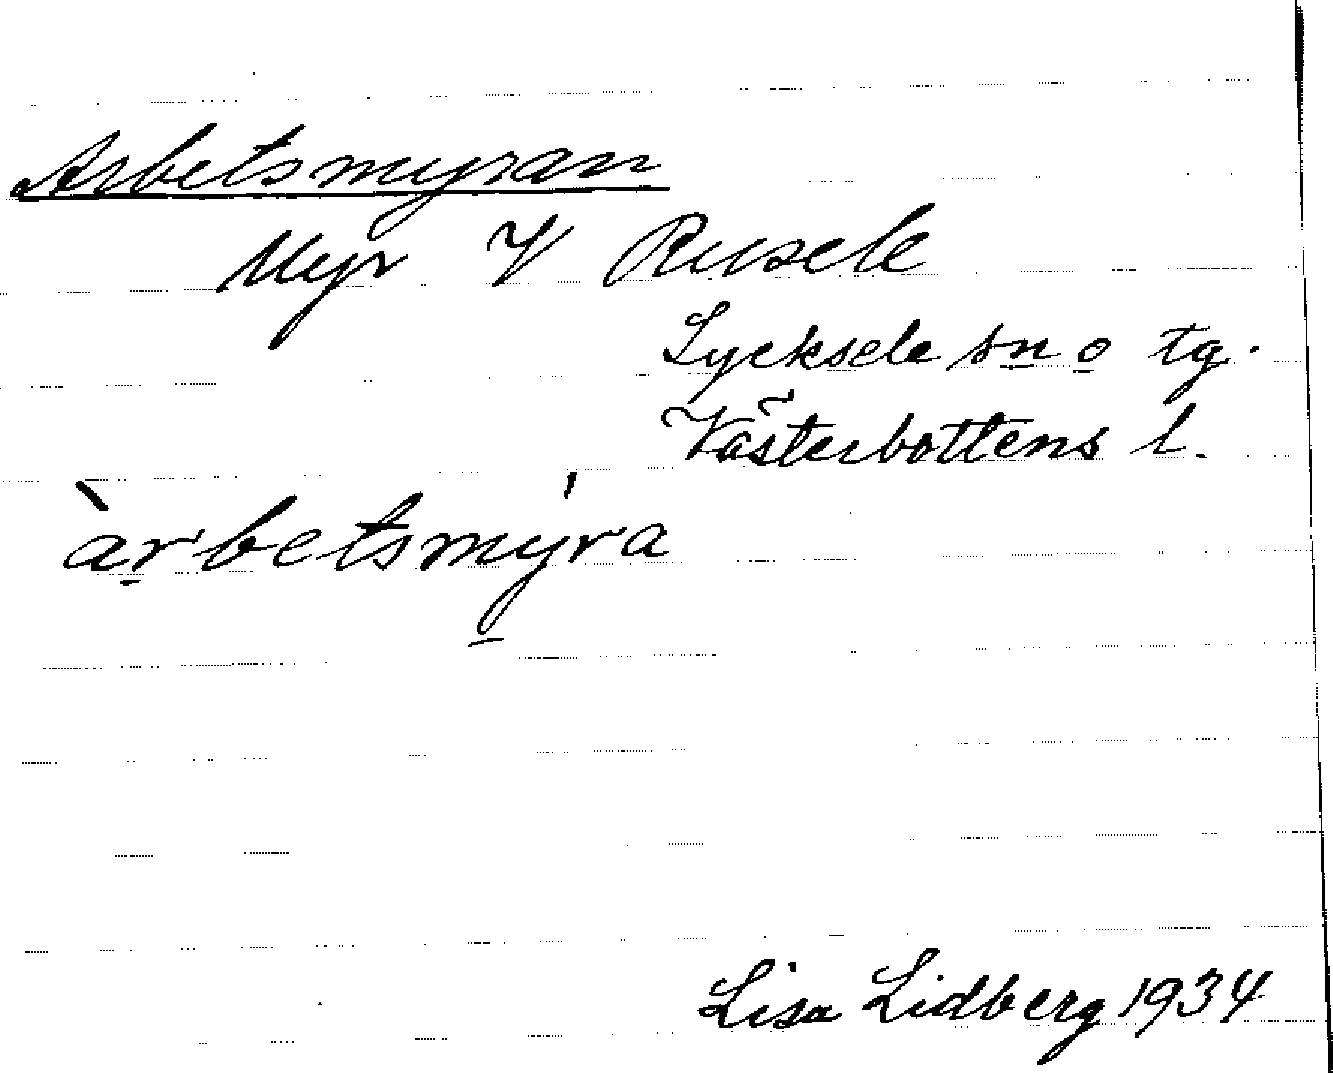 Arbetsmyran
Myr V Rusele
Lycksele sn o tg.
Västerbottens l.
àrbetsmýra
Lisa Lidberg 1934